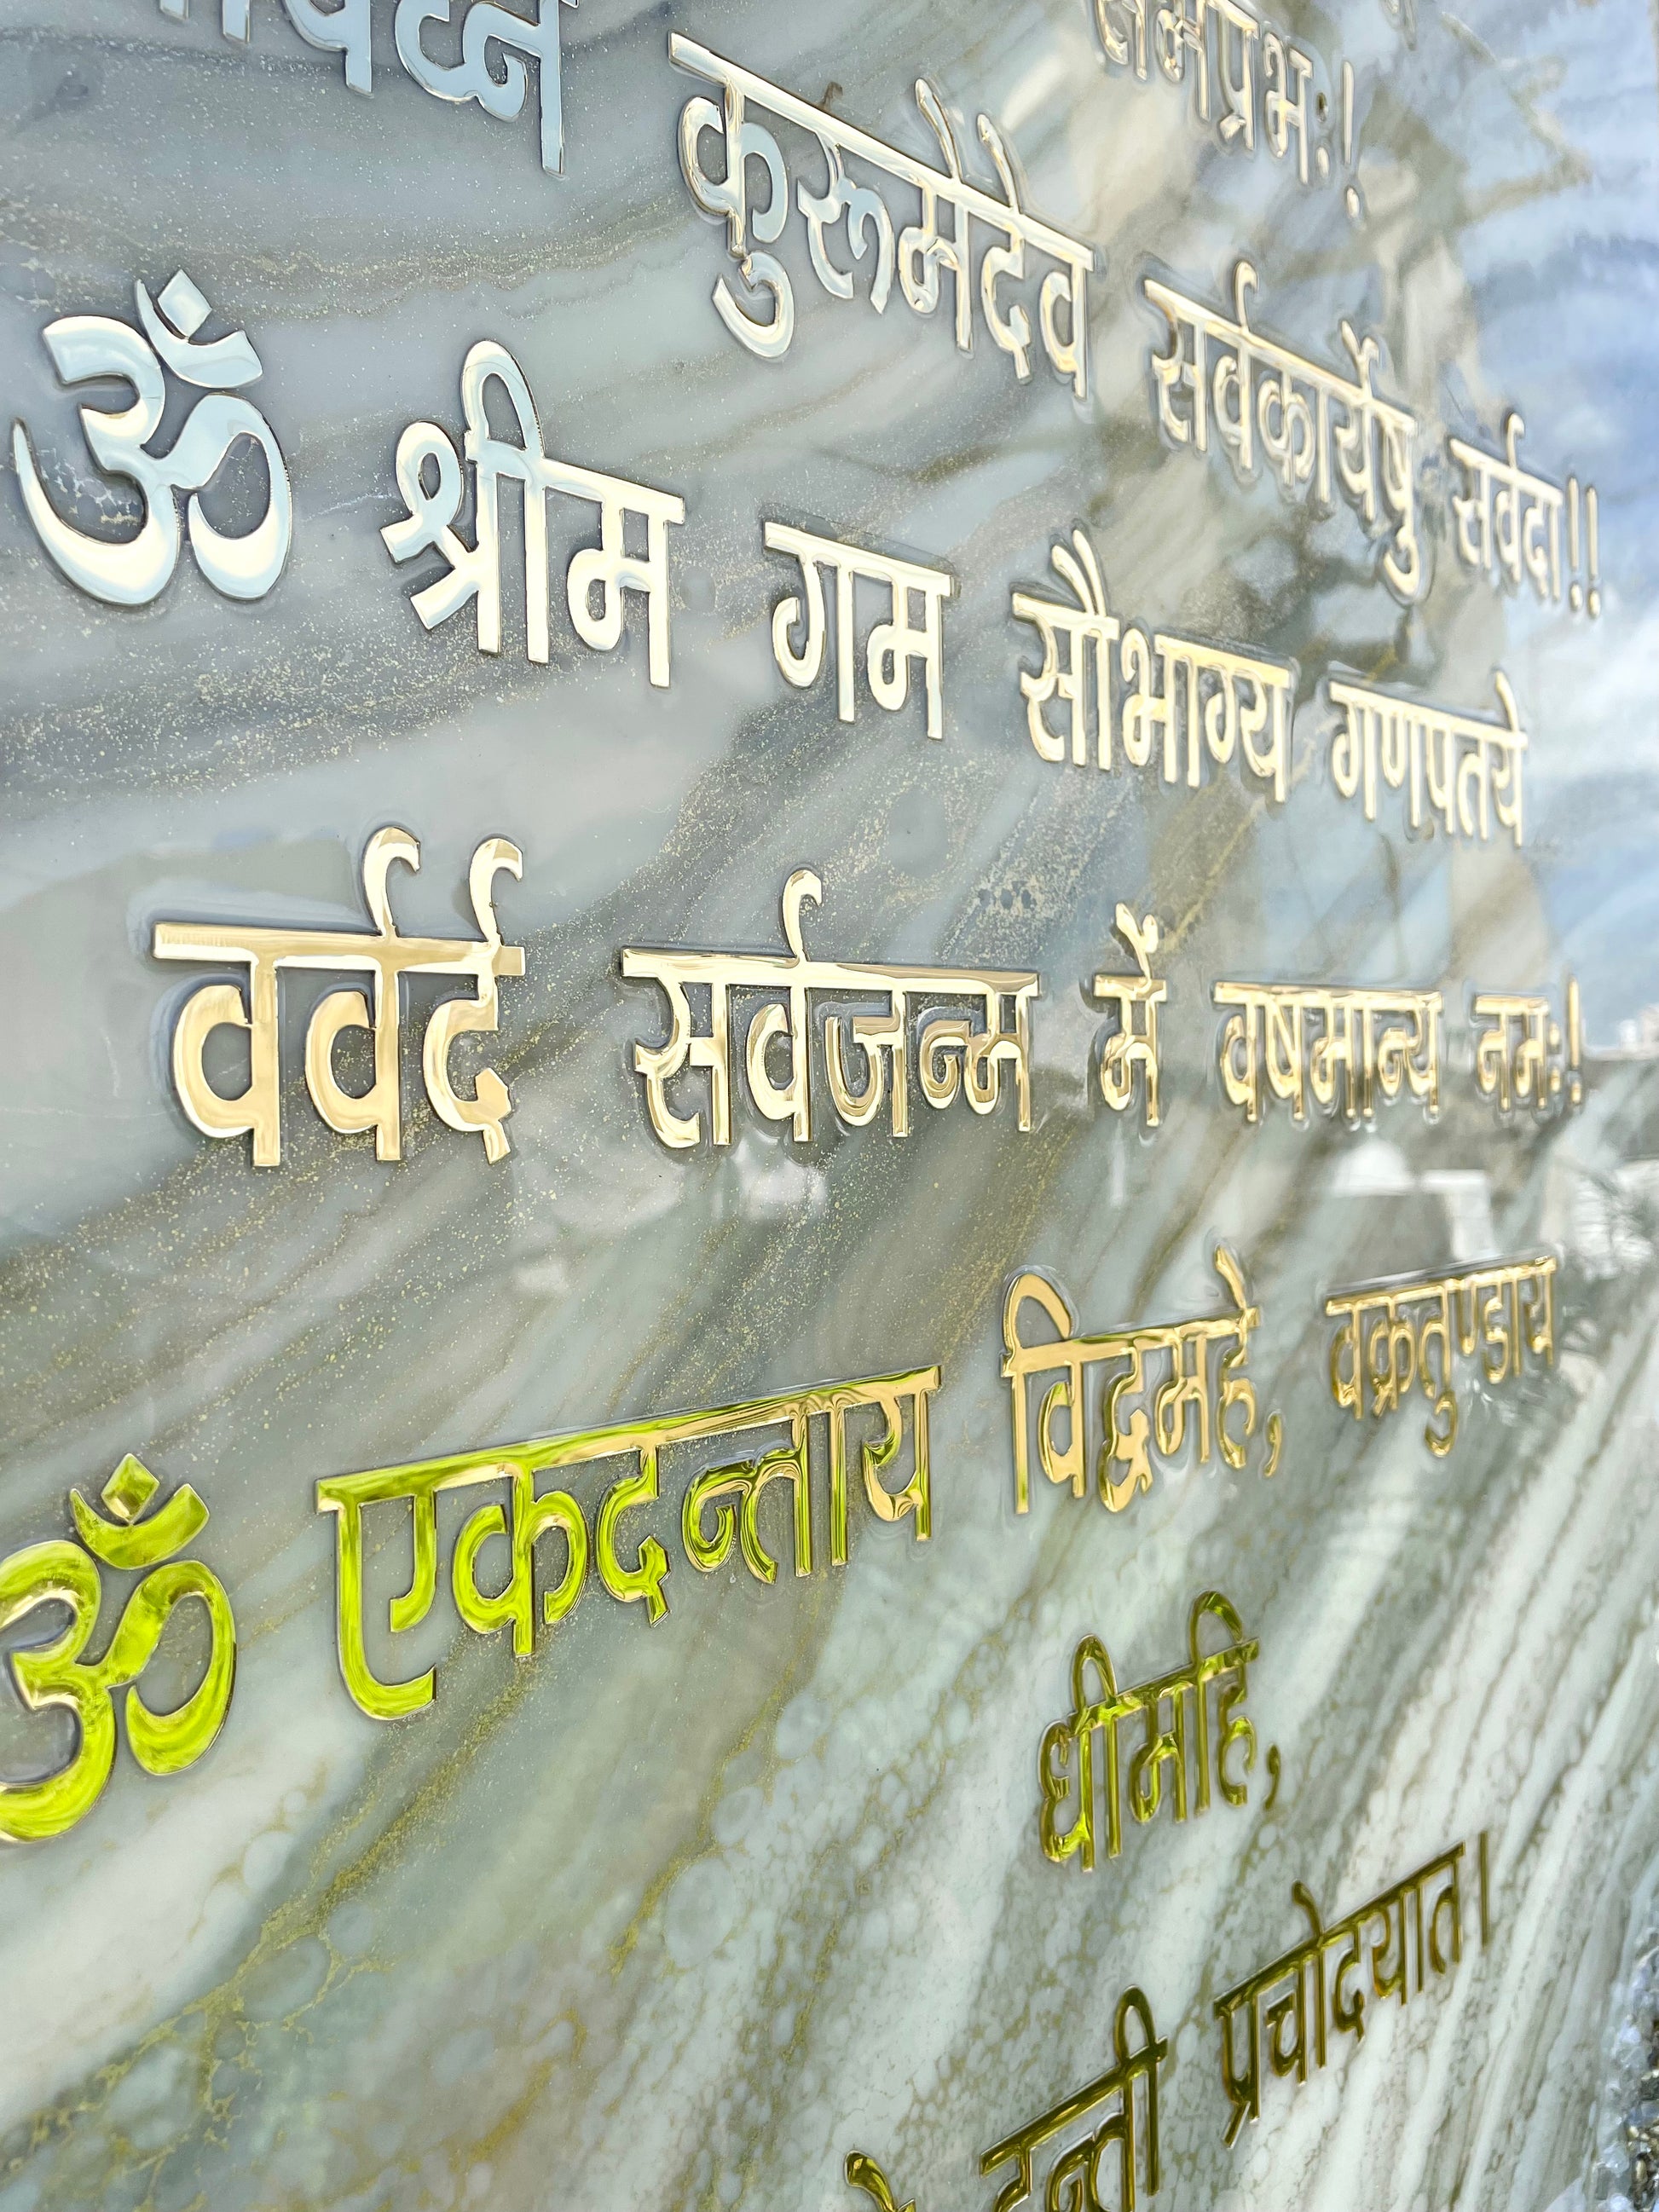 कुरूमेदेव सर्वकार्येषु सर्वदा!!
ॐ श्रीम गम सौभाग्य गणपतये
वर्वर्द सर्वजन्म में वषमान्य नम:!
ॐ एकदन्ताय विद्वमहे, वक्रतुण्डाय
धीमहि,
दन्ती प्रचोदयात।